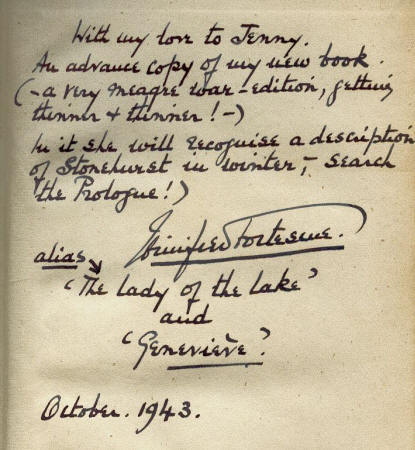 With my love to Jenny.
An advance copy of my new book.
(- a very meagre war-edition, getting
thinner & thinner! -)
In it she will recognise a description
of Stonehurst in winter, - search
the Prologue!)
Winifred Fortescue.
alias
'The lady of the lake'
and
'Genevieve'.
October. 1943.